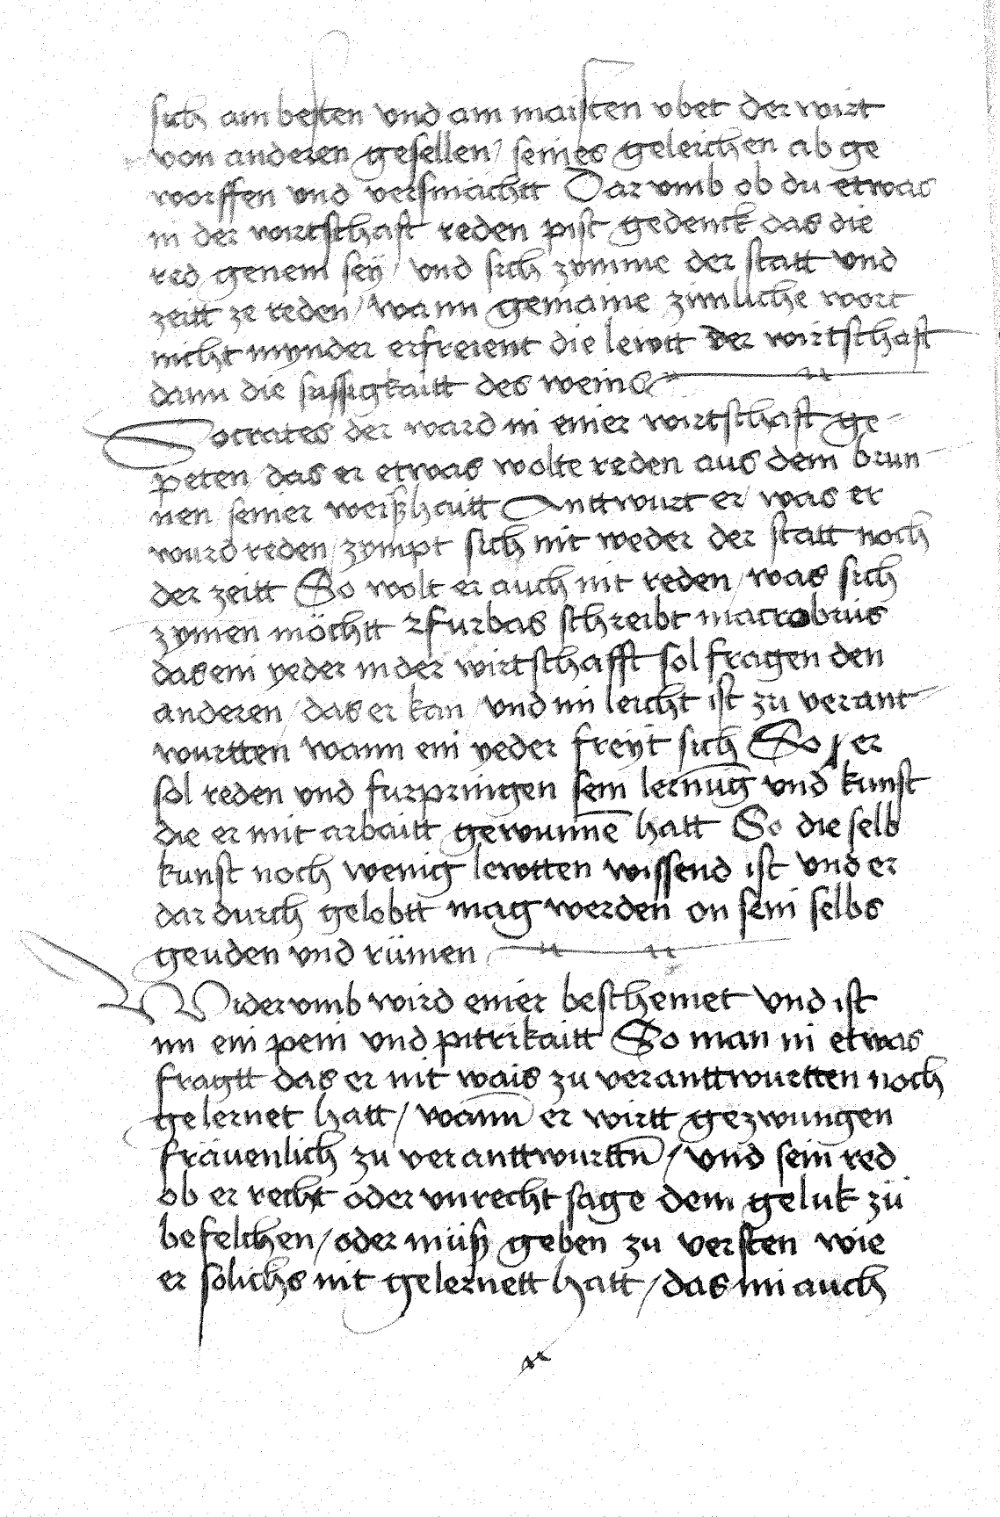 sich am besten vnd am maisten vbet der wirt
von anderen gesellen / seines geleichen ab ge
worffen vnd versmächtt Dar vmb ob du etwas
in der wirtschaft reden pist gedenck das die
red genem seÿ / vnd sich zymme der statt vnd
zeitt ze reden / wann gemaine zimliche wort
nicht mynder erfreient die lewtt der wirtschaft
dann die süssigkaitt des weins
Socrates der ward in einer wirtschaft ge-
peten das er etwas wolte reden aus dem brun
nen seiner weißhaitt Anttwurt er / was er
wurd reden / zympt sich nit weder der statt noch
der zeitt So wolt er auch nit reden / was sich
zymen möchtt furbas schreibt macrobius
das ein yeder in der wirtschafft sol fragen den
anderen / das er kan / vnd im leicht ist zu verant-
wurtten wann ein yeder freyt sich So er
sol reden vnd furpringen sein lernũg vnd kunst
die er mit arbaitt gewunnē hatt So die selb
kunst noch wenig lewtten wissend ist vnd er
dar durch gelobtt mag werden on sein selbs
geuden vnd rümen
Widervmb wird einer beschemet vnd ist
im ein pein vnd pitrikaitt So man in etwas
fragtt das er nit wais zu veranttwurtten noch
gelernet hatt / wann er wirtt gezwungen
fräuenlich zu veranttwurttn̄ / vnd sein red
ob er recht oder vnrecht sage dem geluk zü
befelchen / oder müß geben zu versten wie
er solichs nit gelernett hatt / das im auch